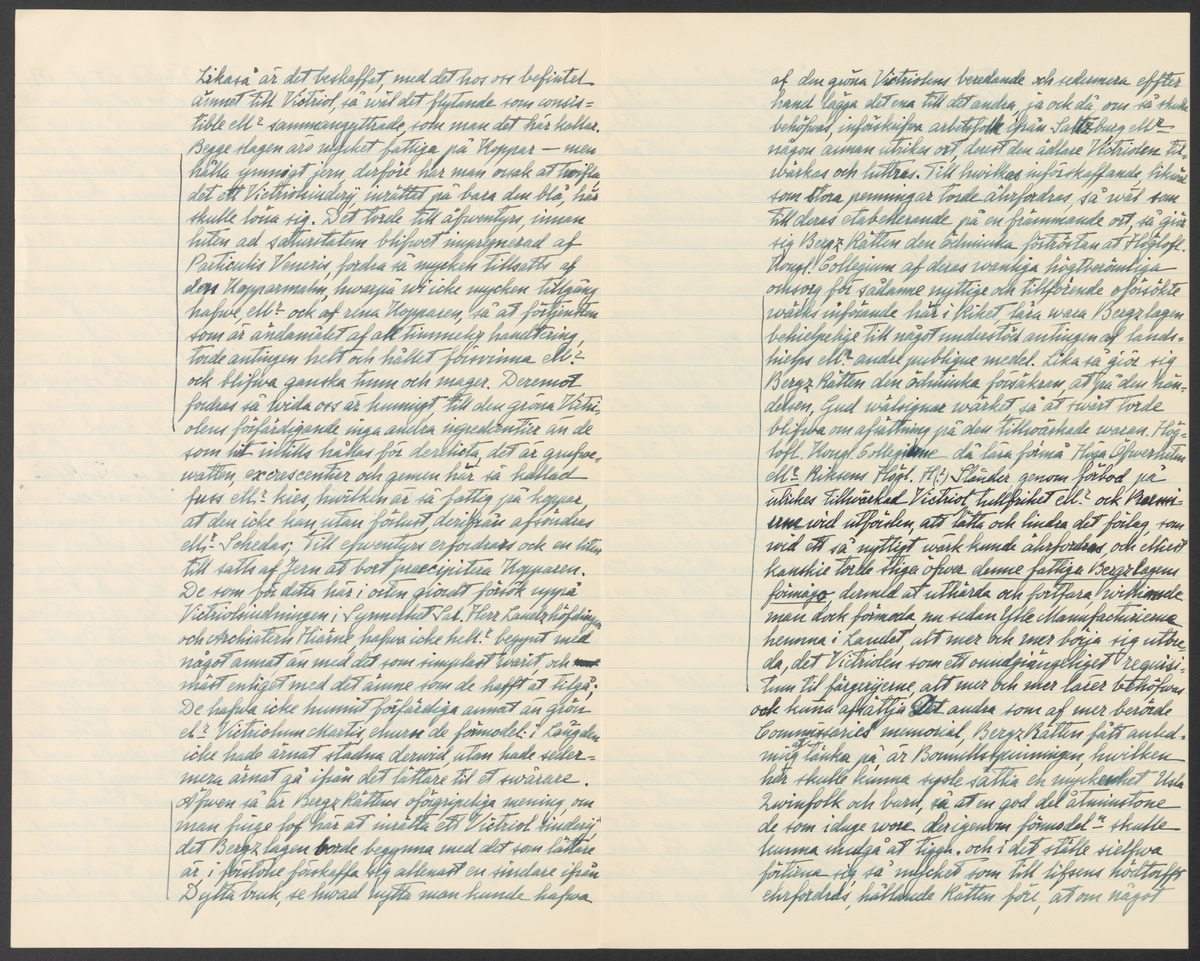 Likaså är det beskaffat, med det hos oss befintel
ämnet till Victriol, så wäl det flytande som consis=
tible ell? sammangyttrade, som man det här kallar.
Begge slagen äro mycket fattiga på Koppar — men
hålla ymnogt jern, derföre har man orsak at twifla,
det ett Victriolsinderij inrättet på bara den blå, här
skulle löna sig. Det torde till äfwentyrs, innan
luten ad saturitatem blifwet impregnerad af
Particulis Veneris, fordra så mycken tillsatts af
den Kopparmalm, hwarpå wi icke mycken tillgång
hafwe, ell? ock af rena Kopparen, så at förtjensten
som är ändamålet af all timmelig handtering,
torde antingen helt och hållet försvinna ell?
ock blifwa ganska tunn och mager. Deremot
fordras så wida oss är kunnigt, till den gröna Victri-
olens förfärdigande inga andra ingredientier än de
som hit intills hållas för de bästa, det är grufwe-
watten, excrescentier och gemen här så kallad
fuss ell? kies, hwilken är så fattig på koppar
at den icke kan, utan förlust, derifrån afsöndras
ell? Schedas; Till efwentyrs erfordrars ock en liten
till satts af Jern at bort praecipitera Kopparen.
De som för detta här i orten giordt försök uppå
Victriolsiudningen, i Synnerhet Sal. Herr Landzhöfdingen
och Archiatern Hiärne, hafwa icke hell? begynt med
något annat än med det som simplast warit och
mäst enliget med det ämne som de hafft at tilgå.
De hafwa icke kunnit förfärdiga annat än grön
el? Victriolum Martis, ehuru de förmodel: i Längden
icke hade ärnat stadna derwid, utan hade seder-
mera ärnat gå ifrån det lättare til et swårare.
Äfwen så är Bergz Rättens oförgripeliga mening, om
man finge lof här at inrätta ett Victriol sinderij,
det Bergzlagen borde begynna med det som lättare
är, i förstone förskaffa sig allenast en sindare ifrån
Dylta bruk, se hwad nytta man kunde hafwa
af den gröna Victriolens beredande och sedermera effter
hand lägga det ena till det andra, ja och då, om så skulle
behöfwas, införskrifwa arbetsfolk ifrån Saltzburg ell?
någon annan utrikes ort derest den ädlare Victriolen til-
wärkas och luttras. Till hwilkas införskaffande, likwäl
som stora penningar torde ährfordras, så wäl som
till deras etabellerande på en främmande ort, så giör
sig Bergz Rätten den ödmiuka förtröstan at Höglofl.
Kongl. Collegium af deras wanliga högtberömliga
omsorg för sådanne nyttige och tillförende oförsökte
wärks införande här i Riket lära wara Bergzlagen
behielpelige till något understöd antingen af lands-
hielps ell? andre publique medel. Lika så giör sig
Bergz Rätten den ödmiuka försäkran at på den hän-
delsen, Gud wälsignar wärket så at swårt torde
blifwa om afsättning på den tillwärckade waran. Hög-
lofl. Kongl. Collegium då lära förmå Höga Öfwerheten
ell? Riksens Högl. H(:) Ständer genom förbod på
utrikes tillwärckad Victriol, tullfrihet ell? och
wid utförslen att lätta och lindra det förlag, som
wid ett så nyttigt wärk kunde ährfordras, och eliest
kanskie torde stiga öfwer denne fattiga Bergzlagens
förmågo dermed at uthärda och fortfara,
man dock förmoda, nu sedan Ylle Manufacturierna
hemma i Landet, alt mer och mer börja sig utbre-
da, det Victriolen som ett oundgiängeliget requisi-
tum til färgerijerne, alt mer och mer lärer behöfwas
och kuna afsättja. Det andra som af mer berörde
Commissaries memorial, Bergz Rätten fått anled-
ning at tänka på, är Bomullsspinningen, hwilken
här skulle kunna syssle sättia en myckenhet Usla
Qwinfolk och barn, så at en god del åtminstone
de som iduge wore, derigenom förmodel? skulle
kunna undgå at tiggia, och i det ställe sielfwa
förtiena sig så mycket som till lifsens nödtorfft
ehrfordras, hållande Rätten före, at om något